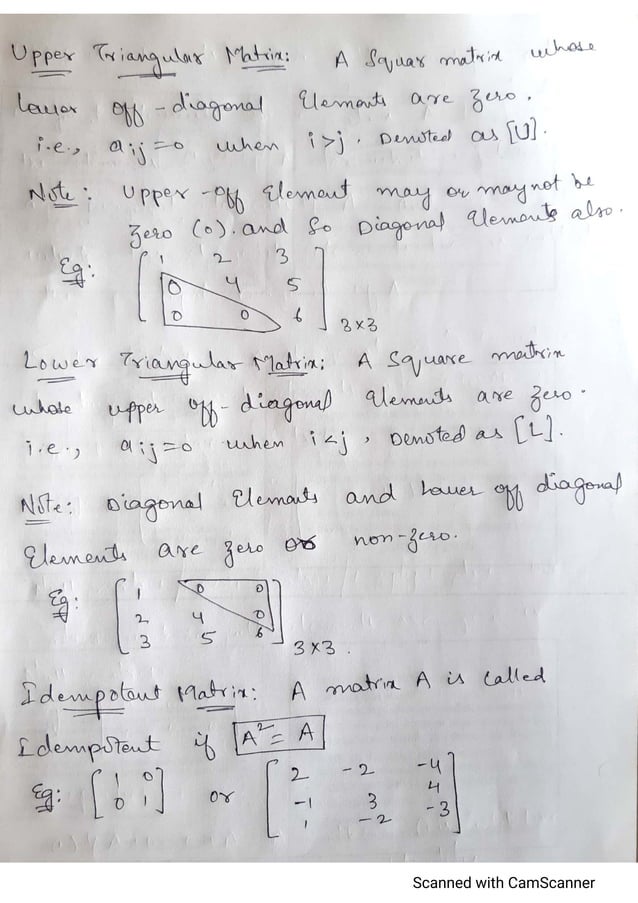 Upper Triangular Matrix: A Squar matrix whose
Lower off-diagonal Elements are zero.
i.e., aij=0 when i>j. Denoted as [U].
Note: Upper-off Element may or may not be
zero (0). and so Diagonal Elements also.
Eg: [ 1 2 3
0 4 5
0 0 6 ] 3×3
Lower Triangular Matrix: A Square matrix
whose upper off-diagonal Elements are zero.
i.e., aij=0 when i<j, Denoted as [L].
Note: Diagonal Elements and Lower off diagonal
Elements are zero or non-zero.
Eg: [ 1 0 0
2 4 0
3 5 6 ] 3×3.
Idempotent Matrix: A matrix A is called
Idempotent if A² = A
Eg: [ 1 0
0 1 ] or [ 2 -2 -4
-1 3 4
1 -2 -3 ]
Scanned with CamScanner